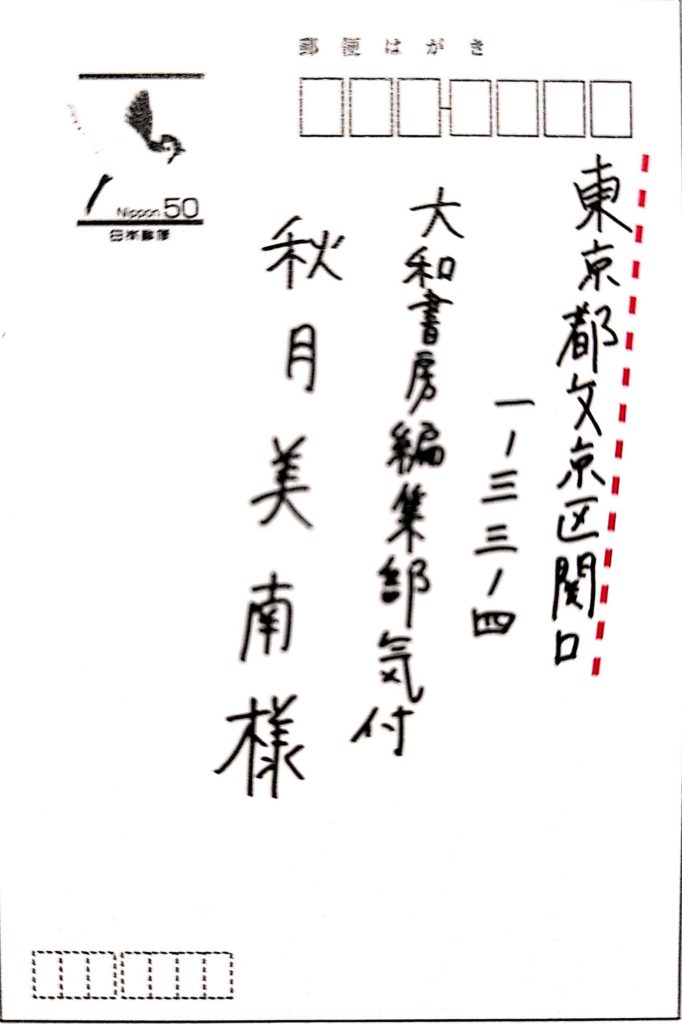 郵便はがき
東京都文京区関口
一ー三三ー四
大和書房編集部気付
秋月美南様
Nippon 50
日本郵便